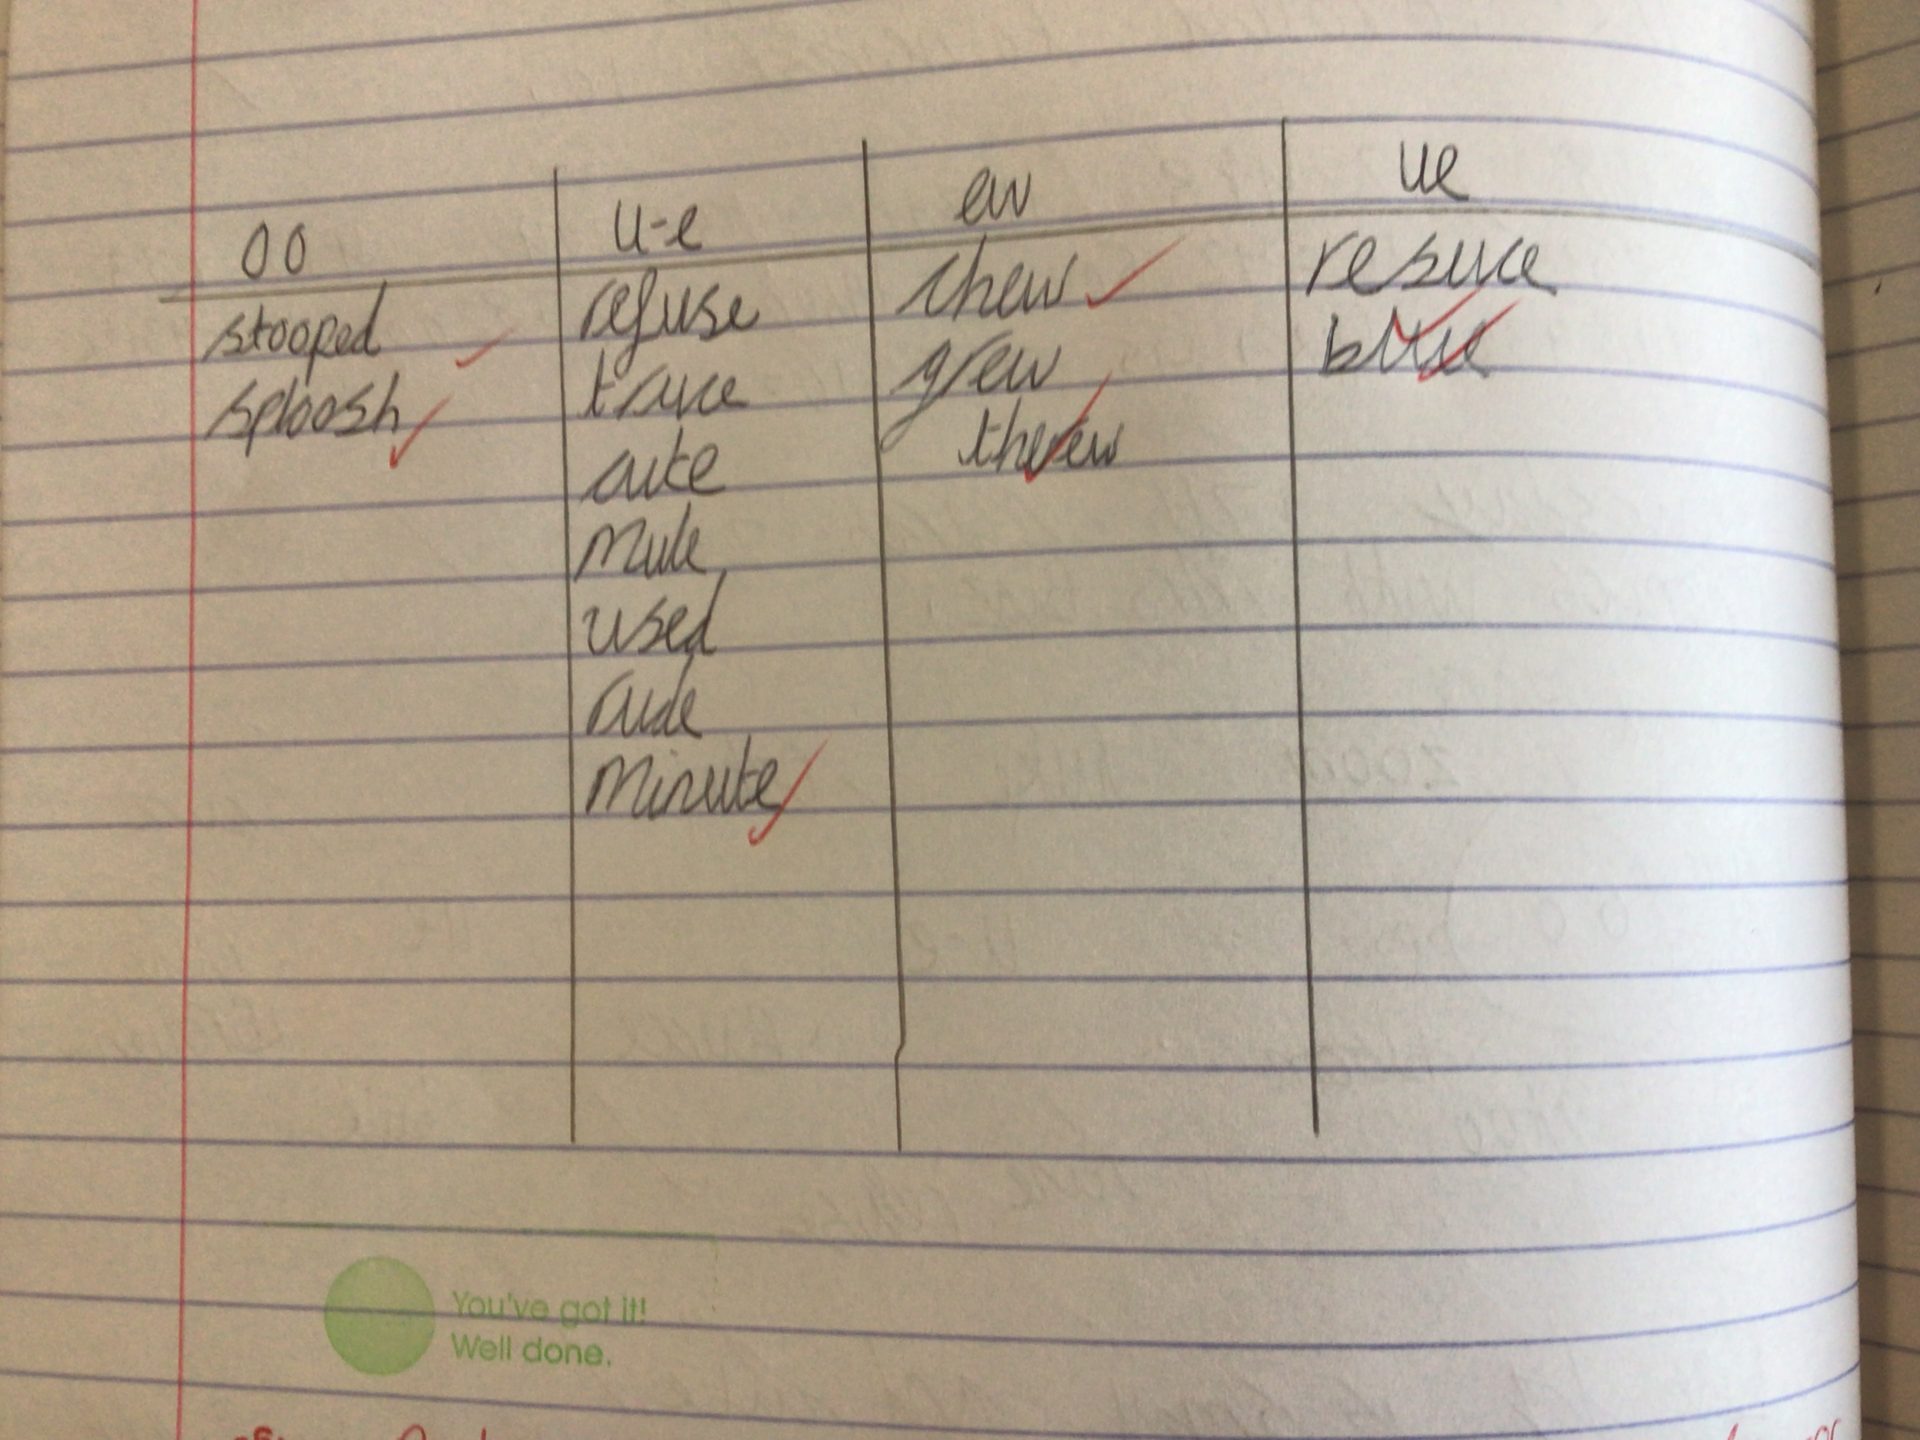 oo u-e ew ue
stooped refuse chew resuce
sploosh truce grew blue
cute threw
mule
used
rude
minute
You've got it!
Well done.